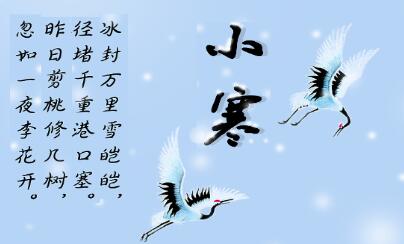 小寒
冰封万里雪皑皑，
径堵千重港口塞。
昨日剪桃修几树，
忽如一夜李花开。